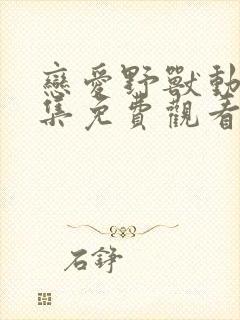 戀愛野獸動
集免費觀看
石錚